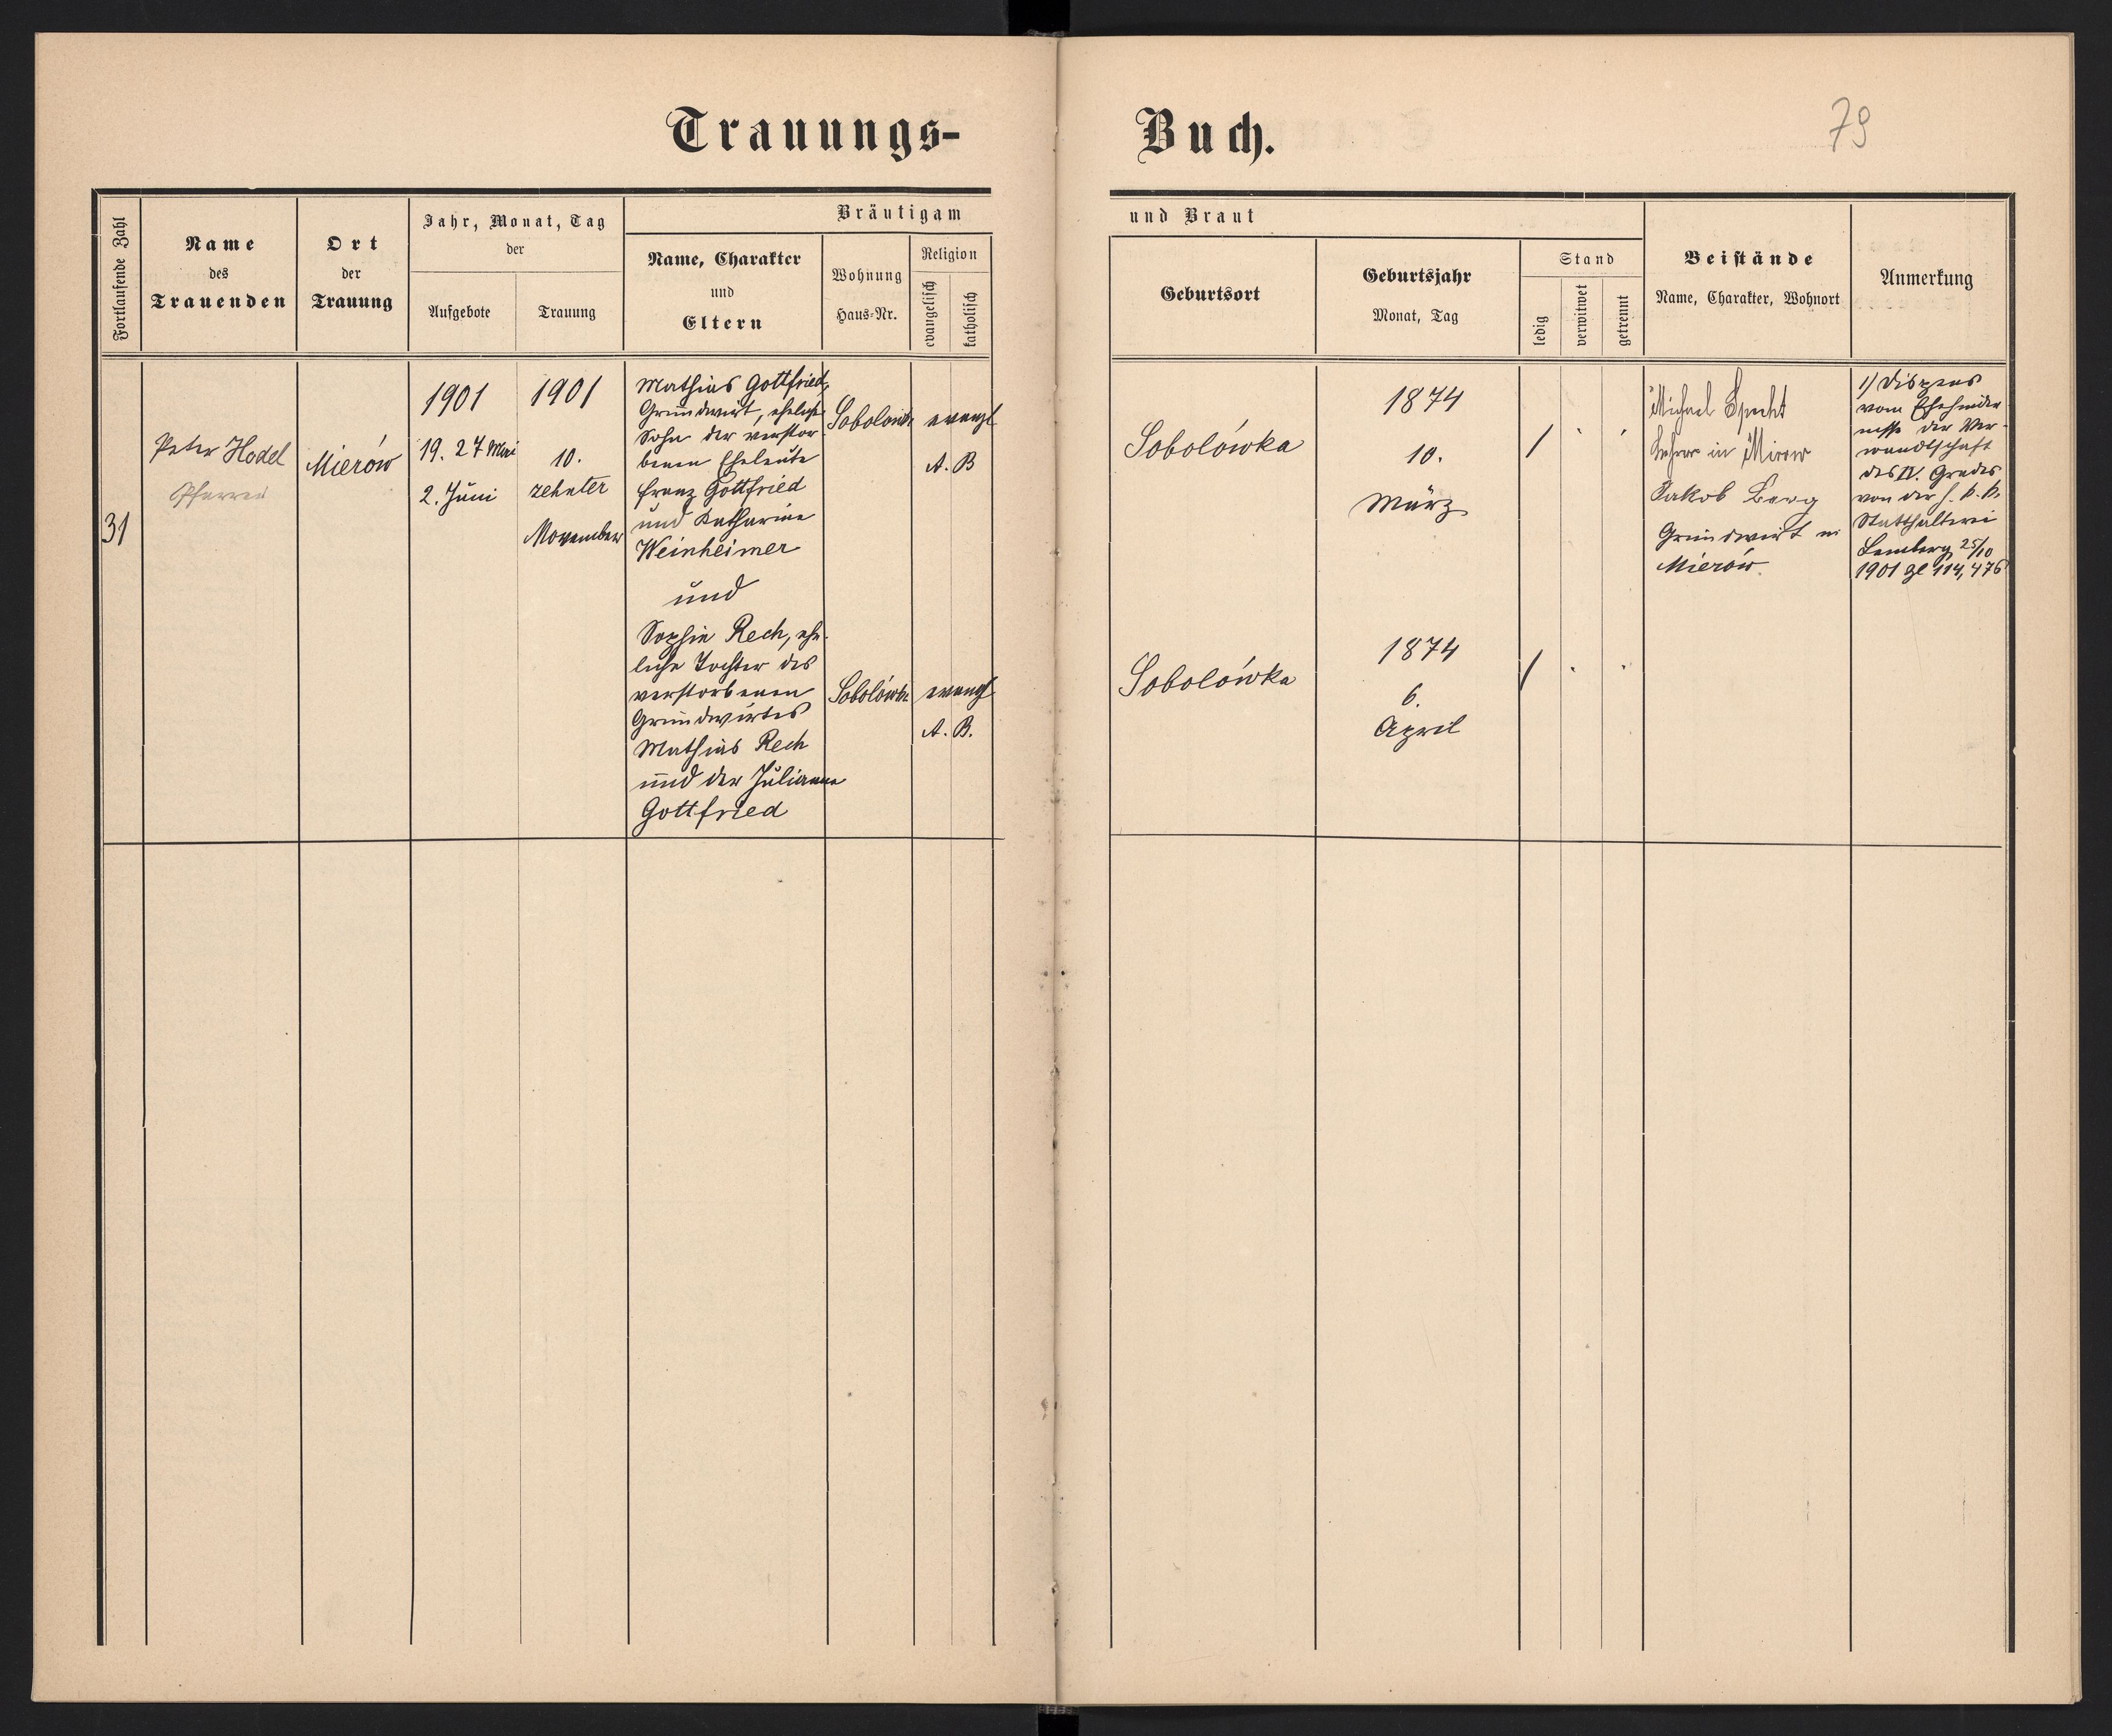 Trauungs-
Buch.
79
Fortlaufende Zahl
Name
des
Trauenden
Ort
der
Trauung
Jahr, Monat, Tag
der
Aufgebote
Trauung
Bräutigam
Name, Charakter
und
Eltern
Wohnung
Haus-Nr.
Religion
evangelisch
katholisch
und Braut
Geburtsort
Geburtsjahr
Monat, Tag
Stand
ledig
verwitwet
getrennt
Beistände
Name, Charakter, Wohnort
Anmerkung
31
Peter Hodel
Mierów
1901
19. 27 Mai
2. Juni
1901
10.
zehnter
November
Mathias Gottfried,
Grundwirt, ehelicher
Sohn der verstor-
benen Eheleute
Franz Gottfried
und Katharine
Weinheimer
und
Sophie Rech, ehe-
liche Tochter des
verstorbenen
Grundwirtes
Mathias Rech
und der Julianna
Gottfried
Sobolówka
evangl
A. B
Sobolówka
evangl
A. B.
Sobolówka
1874
10.
März
Sobolówka
1874
6.
April
Michael Specht
Lehrer in Mierow
Jakob Berg
Grundwirt in
Mierów
1/ Dispens
vom Ehehinder-
nisse der Ver-
wandtschaft
des IV. Grades
von der h. k. k.
Statthalterei
Lemberg 25/10
1901 Zl 114,476